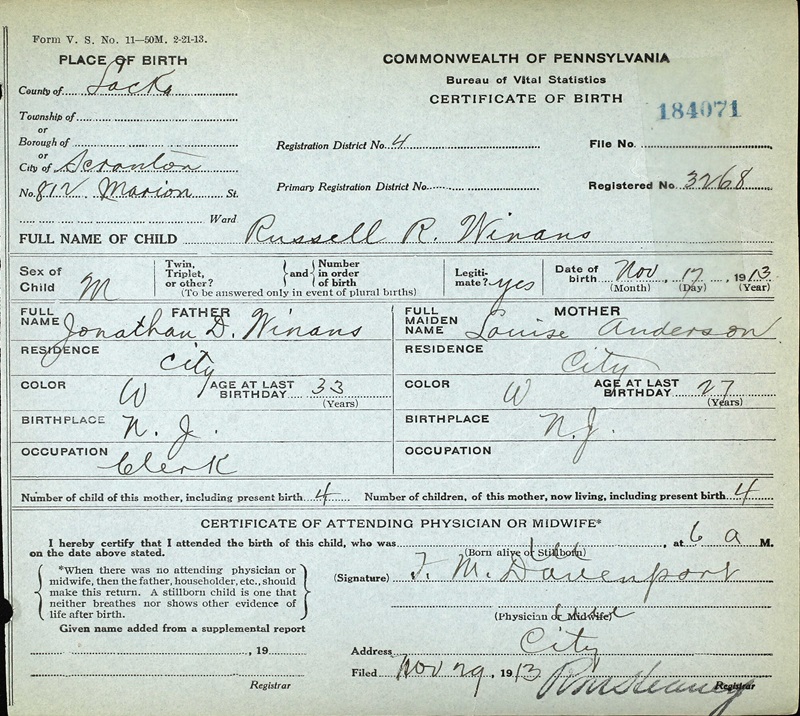 Form V. S. No. 11—50M. 2-21-13.
PLACE OF BIRTH
County of Lacka
Township of
or
Borough of
or
City of Scranton
No. 812 Marion St.
Ward
COMMONWEALTH OF PENNSYLVANIA
Bureau of Vital Statistics
CERTIFICATE OF BIRTH
184071
Registration District No. 4 File No.
Primary Registration District No. Registered No. 3268
FULL NAME OF CHILD Russell R. Winans
Sex of Child M
Twin, Triplet, or other? } and { Number in order of birth
(To be answered only in event of plural births)
Legiti-mate? yes
Date of birth Nov 17, 1913
(Month) (Day) (Year)
FATHER
FULL NAME Jonathan D. Winans
RESIDENCE City
COLOR W AGE AT LAST BIRTHDAY 33
(Years)
BIRTHPLACE N. J.
OCCUPATION Clerk
MOTHER
FULL MAIDEN NAME Louise Anderson
RESIDENCE City
COLOR W AGE AT LAST BIRTHDAY 27
(Years)
BIRTHPLACE N.J.
OCCUPATION
Number of child of this mother, including present birth 4 Number of children, of this mother, now living, including present birth 4
CERTIFICATE OF ATTENDING PHYSICIAN OR MIDWIFE*
I hereby certify that I attended the birth of this child, who was , at 6 a M.
on the date above stated. (Born alive or Stillborn)
*When there was no attending physician or
midwife, then the father, householder, etc., should
make this return. A stillborn child is one that
neither breathes nor shows other evidence of
life after birth.
(Signature) T. M. Davenport
(Physician or Midwife)
Given name added from a supplemental report
, 19
Registrar
Address City
Filed Nov 29, 1913
Registrar